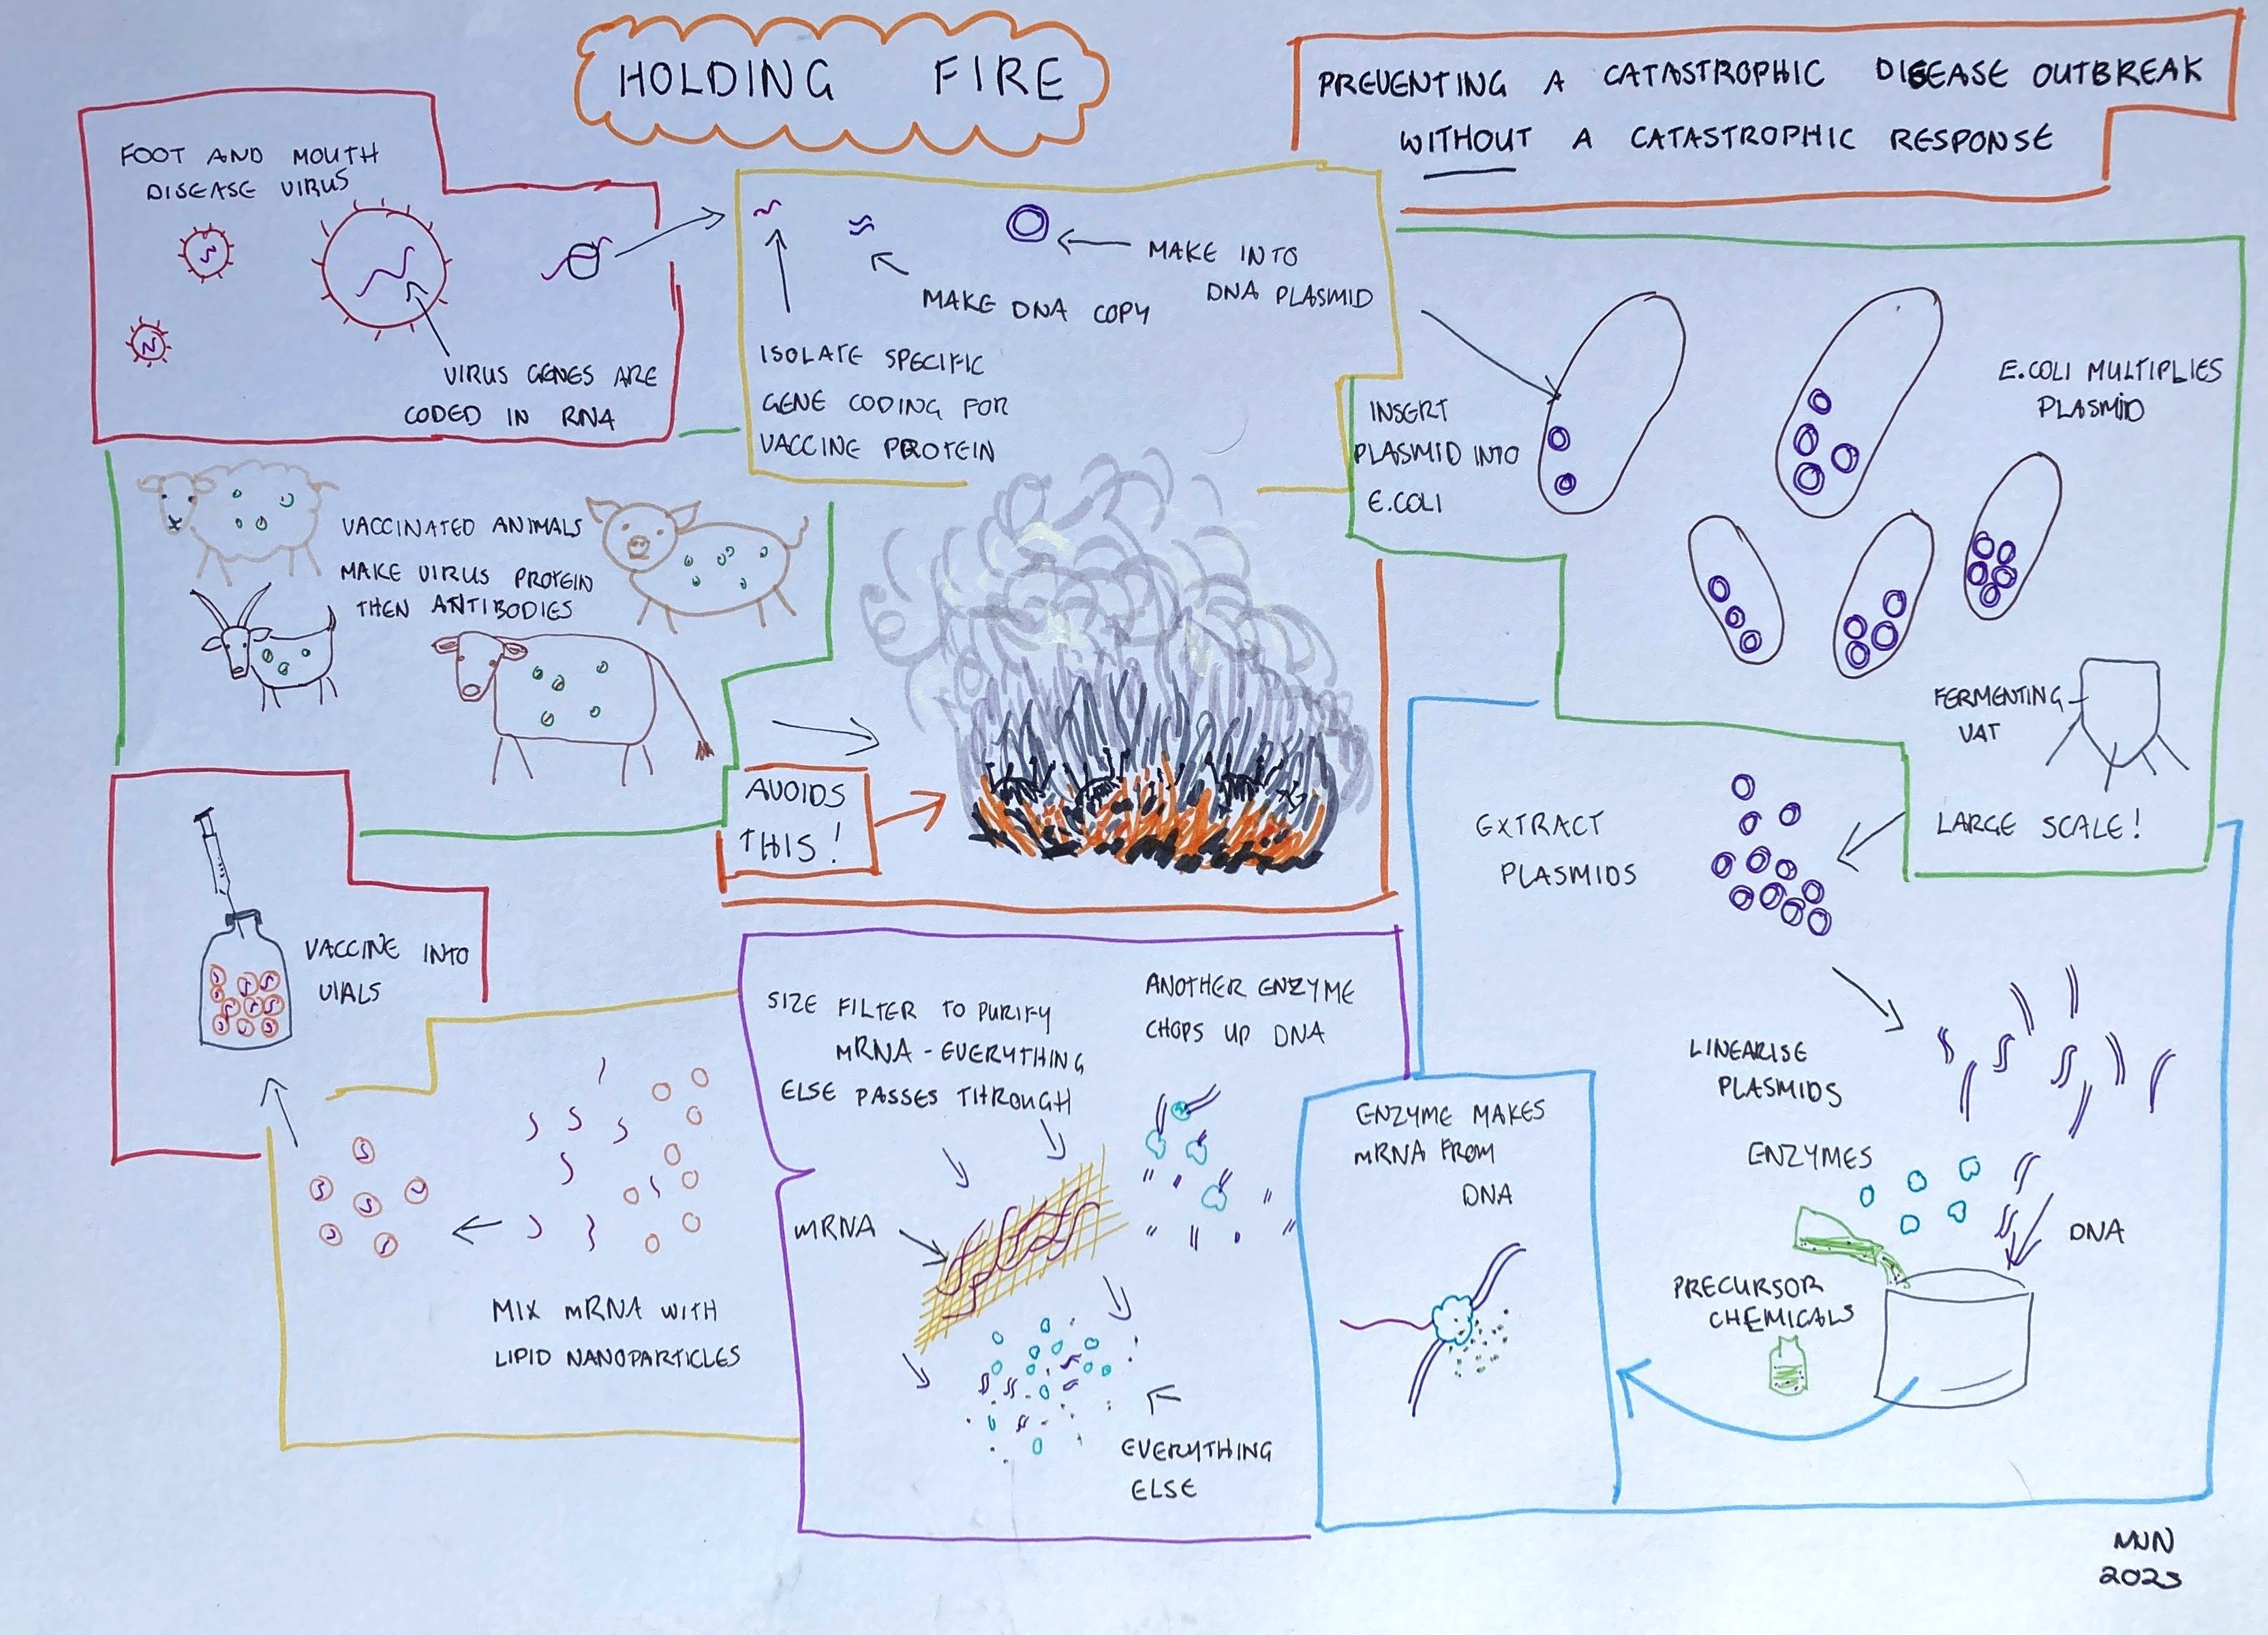 HOLDING FIRE
PREVENTING A CATASTROPHIC DISEASE OUTBREAK
WITHOUT A CATASTROPHIC RESPONSE
FOOT AND MOUTH
DISEASE VIRUS
VIRUS GENES ARE
CODED IN RNA
MAKE INTO
DNA PLASMID
MAKE DNA COPY
ISOLATE SPECIFIC
GENE CODING FOR
VACCINE PROTEIN
INSERT
PLASMID INTO
E.COLI
E.COLI MULTIPLIES
PLASMID
FERMENTING
VAT
LARGE SCALE!
EXTRACT
PLASMIDS
LINEARISE
PLASMIDS
ENZYMES
DNA
PRECURSOR
CHEMICALS
ENZYME MAKES
mRNA FROM
DNA
ANOTHER ENZYME
CHOPS UP DNA
SIZE FILTER TO PURIFY
mRNA - EVERYTHING
ELSE PASSES THROUGH
mRNA
EVERYTHING
ELSE
MIX mRNA WITH
LIPID NANOPARTICLES
VACCINE INTO
VIALS
VACCINATED ANIMALS
MAKE VIRUS PROTEIN
THEN ANTIBODIES
AVOIDS
THIS!